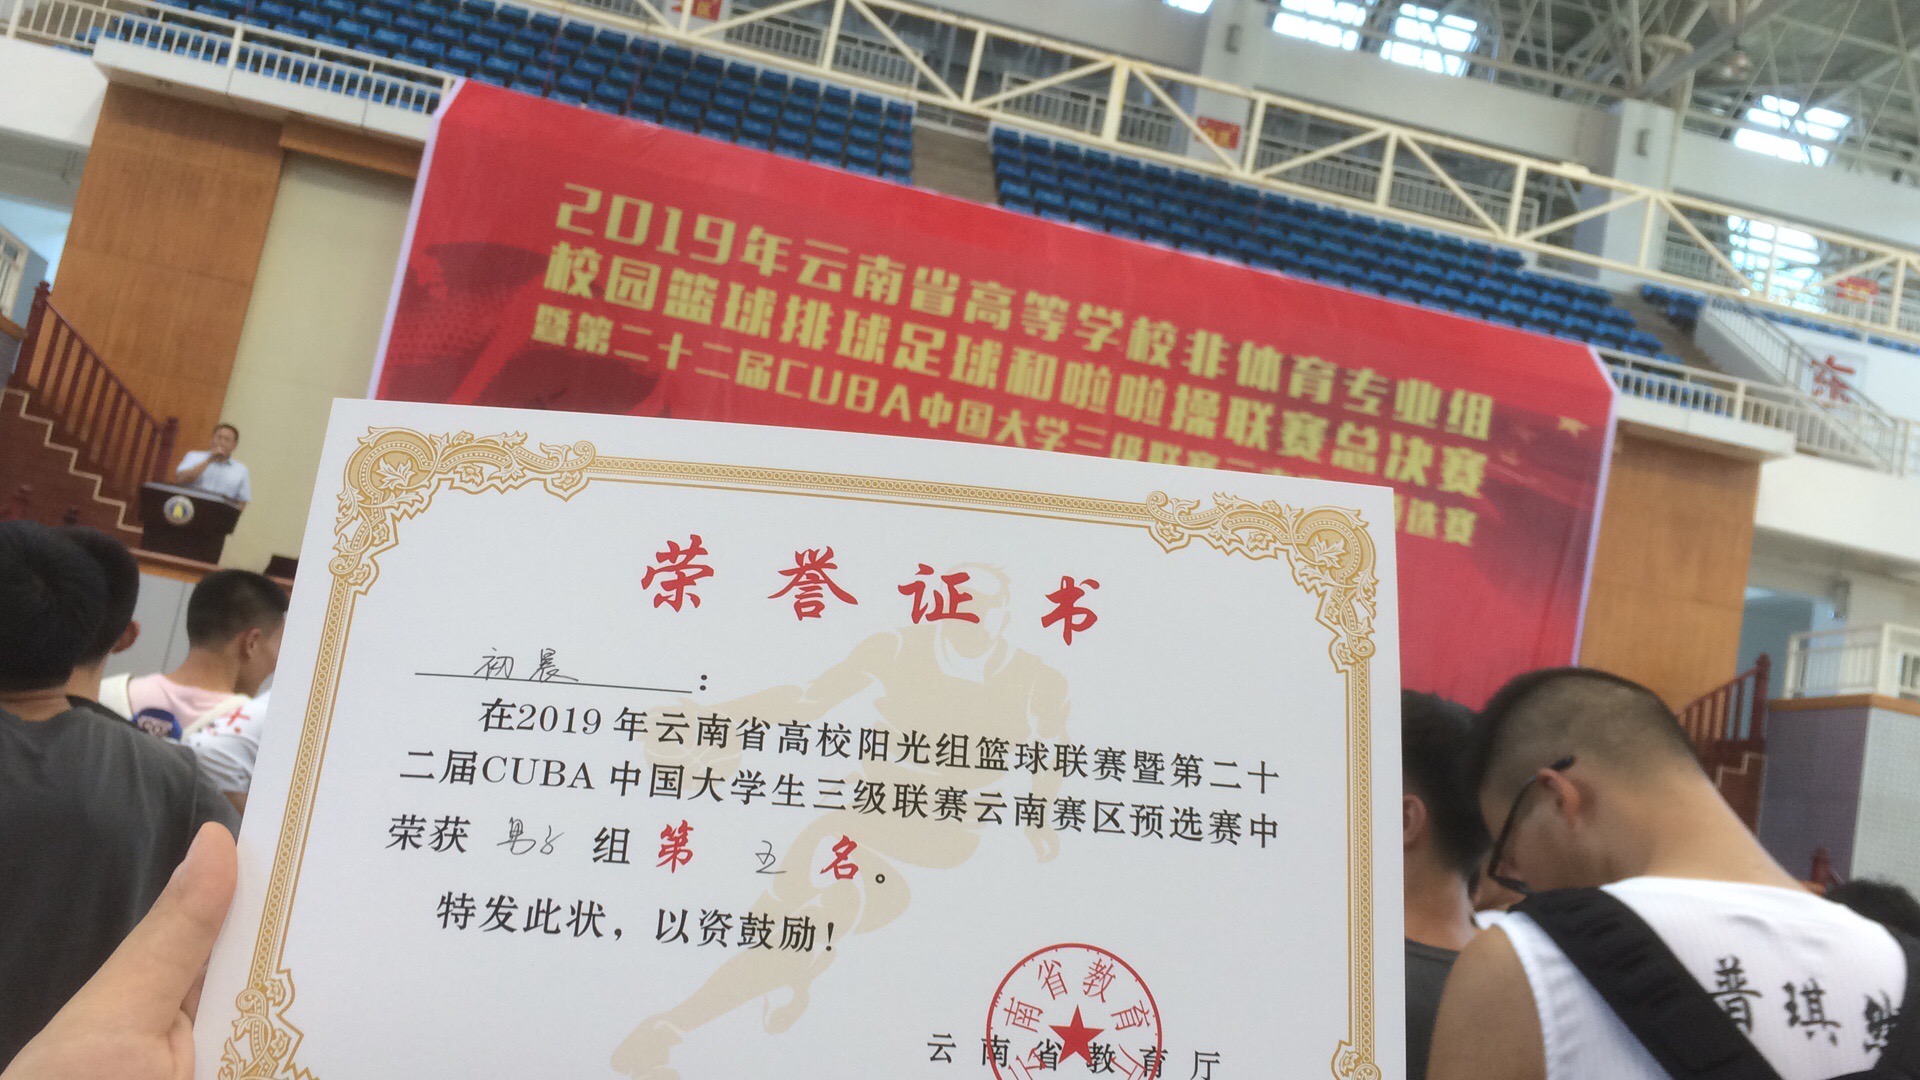 2019年云南省高等学校非体育专业组
校园篮球排球足球和啦啦操联赛总决赛
暨第二十二届CUBA中国大学三级联赛
选赛
东
荣誉证书
初晨:
在2019年云南省高校阳光组篮球联赛暨第二十
二届CUBA中国大学生三级联赛云南赛区预选赛中
荣获 男子 组 第 五 名。
特发此状，以资鼓励！
云南省教育厅
南省教育厅
普琪